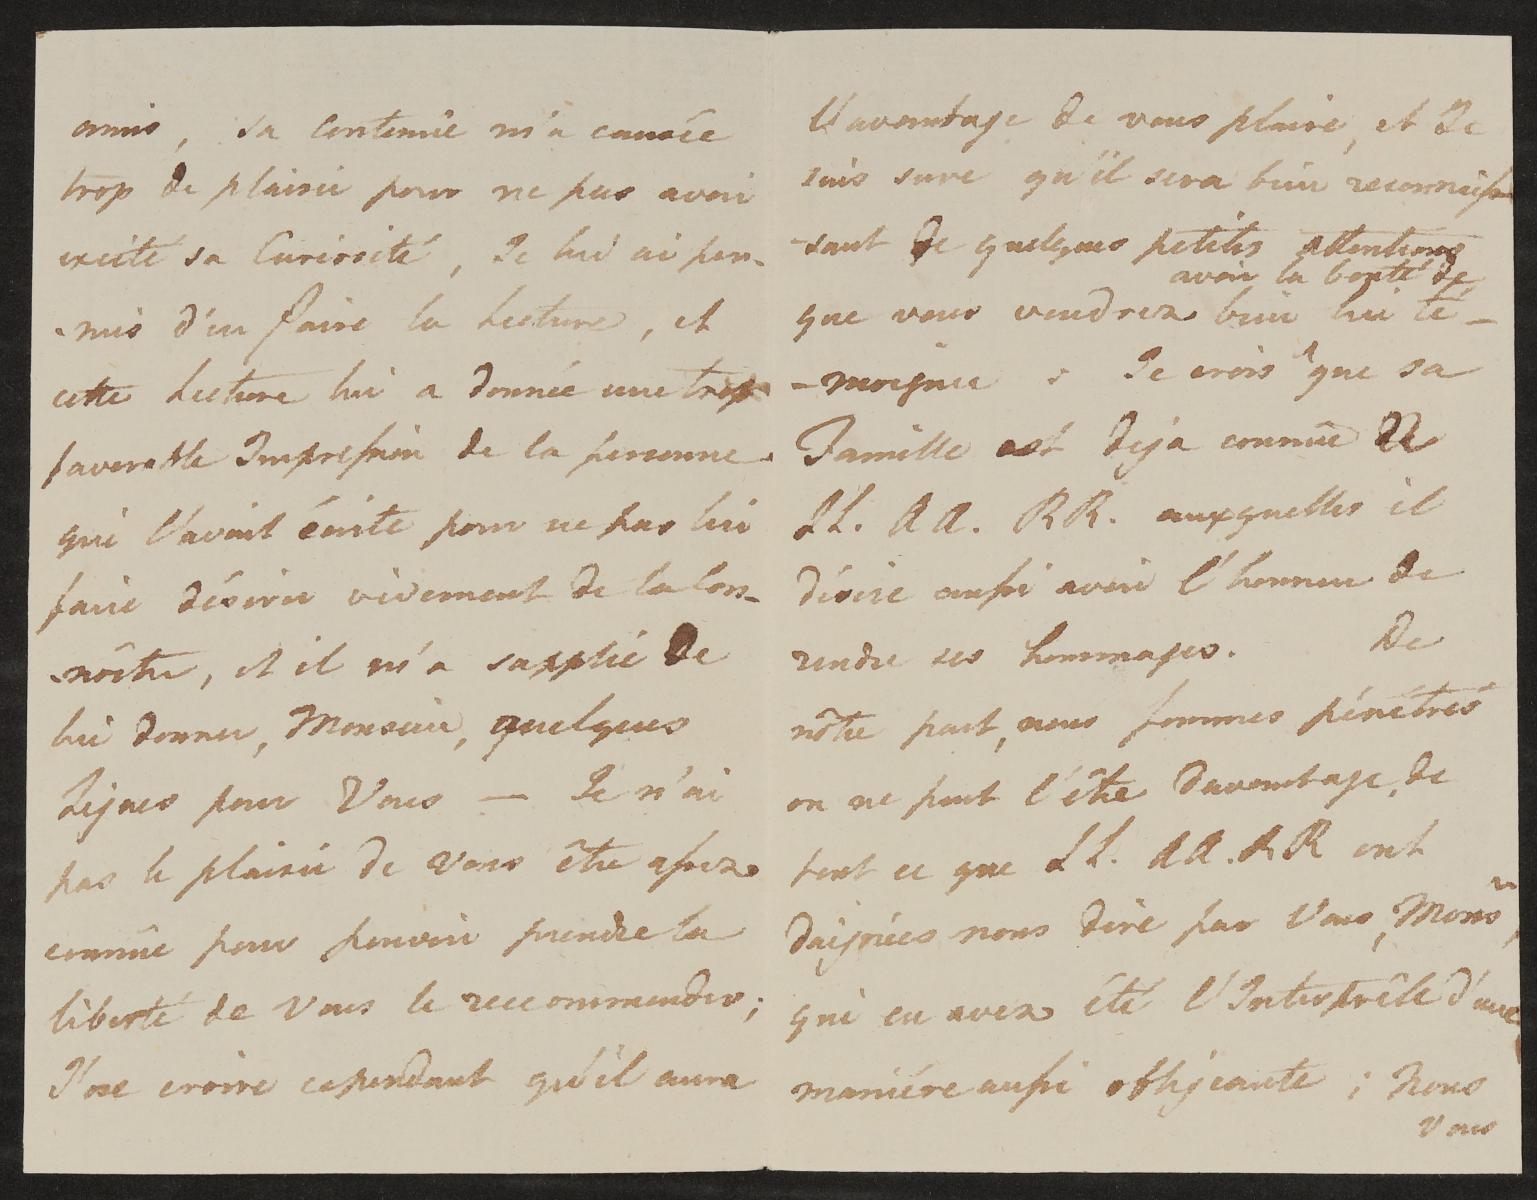 amis, sa contenüe m'a causée
trop de plaisir pour ne pas avoir
excité sa Curiosité, Je lui ai per-
-mis d'en faire la Lecture, et
cette Lecture lui a donnée une trop
favorable Impression de la personne
qui l'avait écrite pour ne pas lui
faire désirer vivement de la con-
-nôitre, et il m'a supplié de
lui donner, Monsieur, quelques
Lignes pour Vous — Je n'ai
pas le plaisir de vous être assez
connüe pour pouvoir prendre la
liberté de Vous le reccommender;
J'ose croire cependant qu'il aura
l'avantage de vous plaire, et Je
suis sure qu'il sera bien reconnais
-sant de quelques petites attentions
avoir la bonté de
que vous voudrez bien lui té-
-moigner. Je crois que sa
Famille est deja connüe de
LL. AA. RR. auxquelles il
désire aussi avoir l'honneur de
rendre ses hommages. De
nôtre part, nous sommes pénétrés
on ne peut l'être davantage, de
tout ce que LL. AA. RR ont
daignées nous dire par Vous, Monsr,
qui en avez été l'Interprête d'une
maniére aussi obligeante; Nous
vous